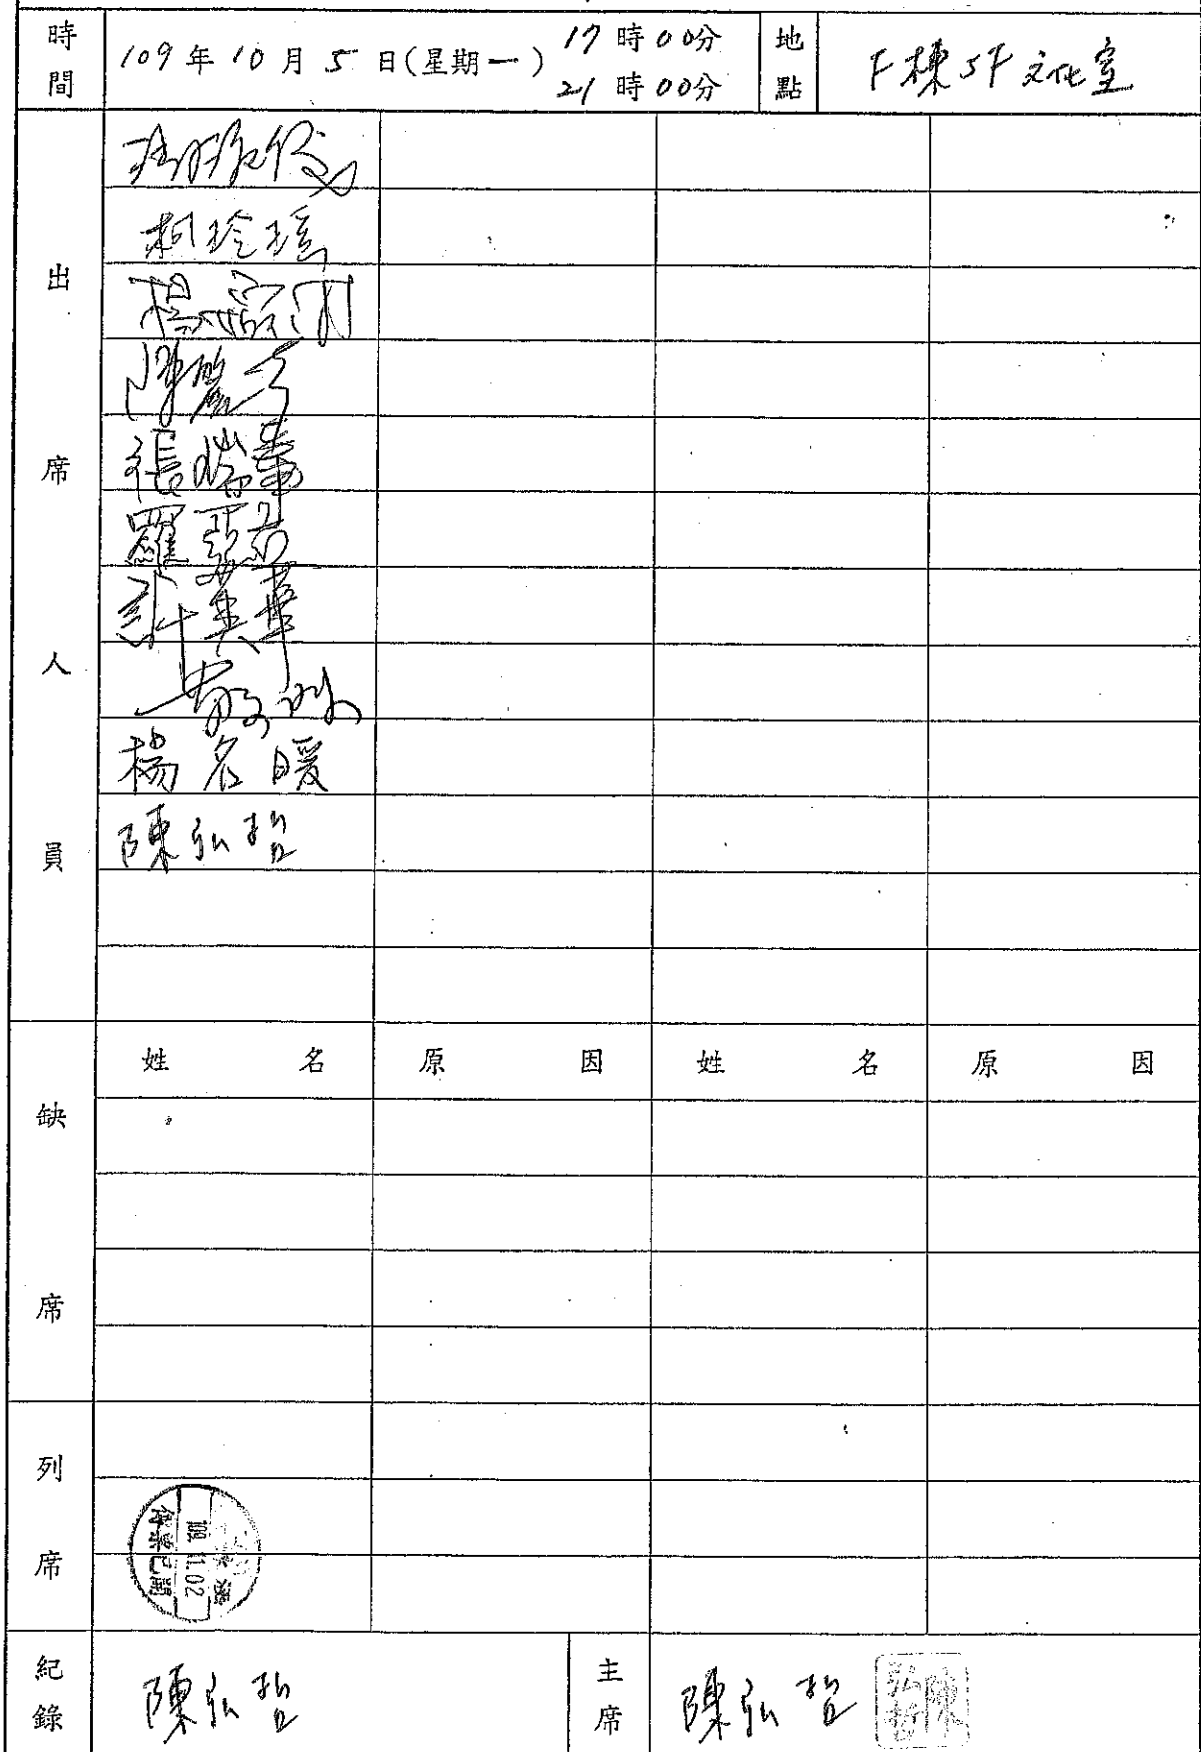 時間 109年10月5日(星期一) 17時00分 21時00分 地點 F棟5F文化室
出席人員
柯玲瑤
楊
陳
張瑞
羅
許英華
敏
楊名暖
陳弘哲
缺席
姓名 原因 姓名 原因
列席
109.11.02
紀錄 陳弘哲 主席 陳弘哲 陳弘哲